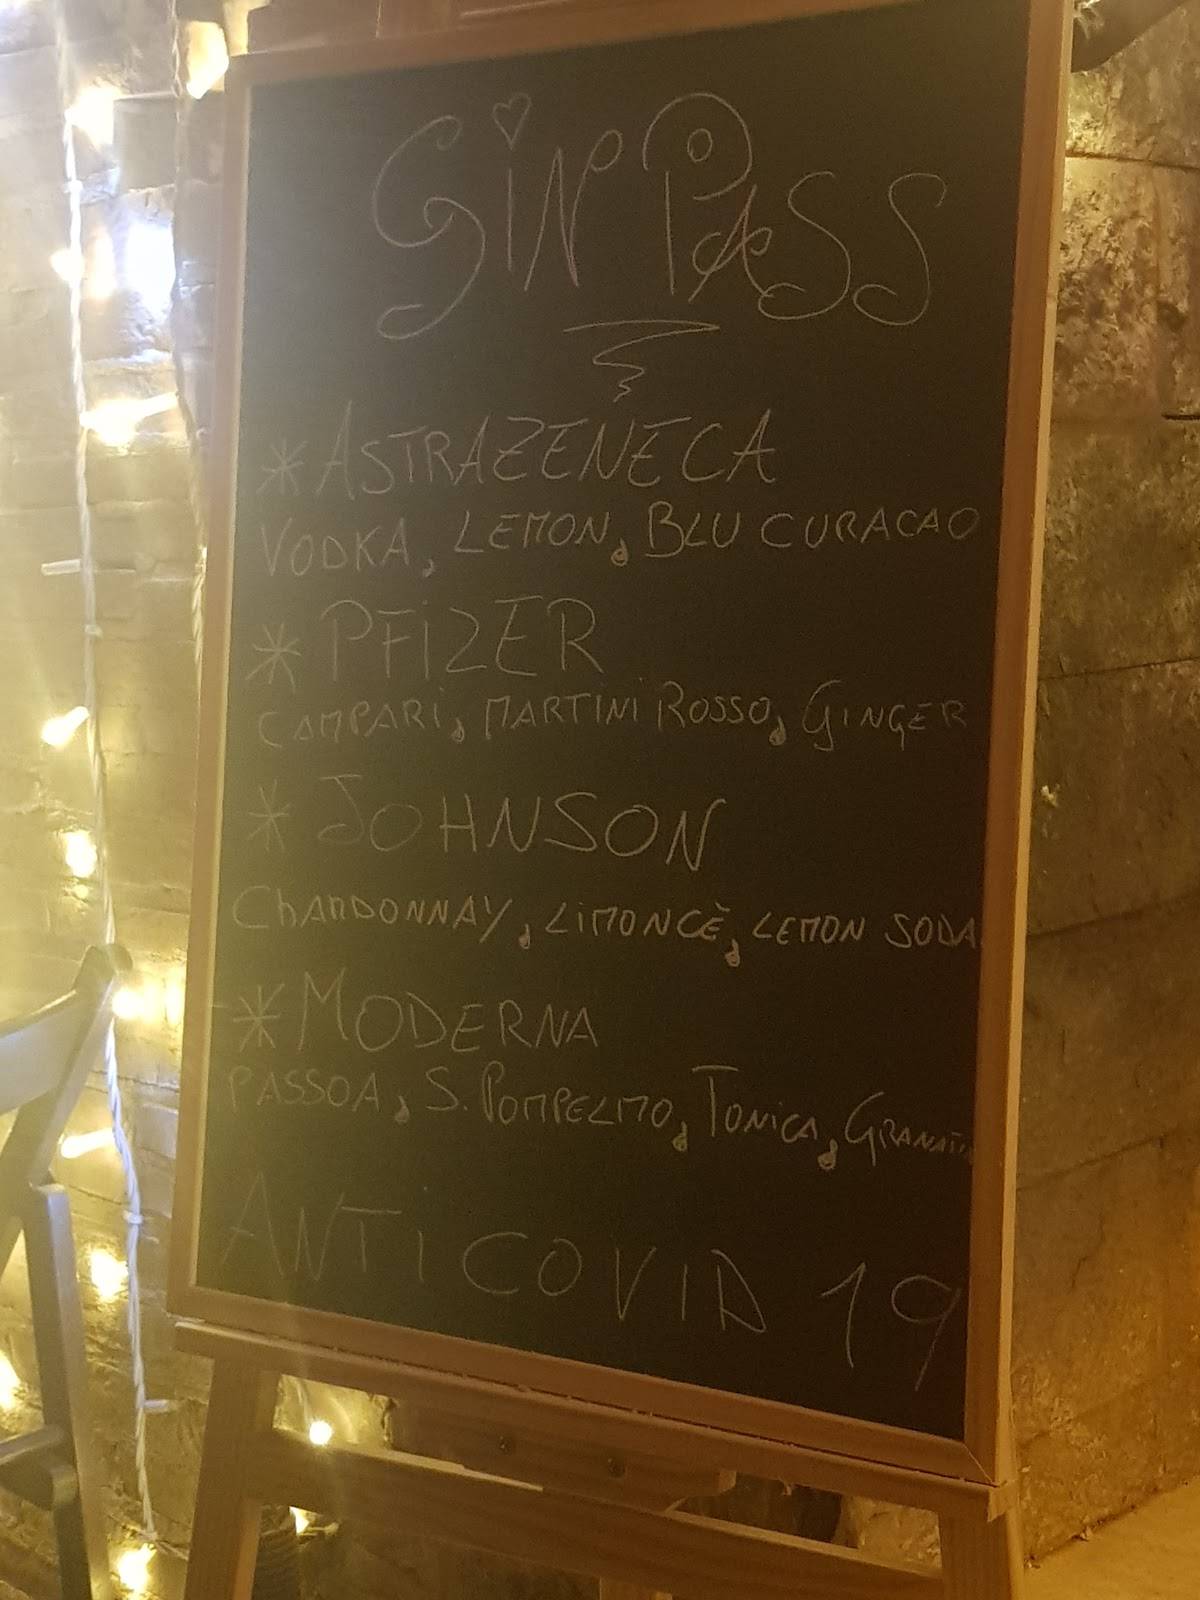 Gin Pass
* ASTRAZENECA
VODKA, LEMON, BLU CURACAO
* PFIZER
CAMPARI, MARTINI ROSSO, GINGER
* JOHNSON
CHARDONNAY, LIMONCÈ, LEMON SODA
* MODERNA
PASSOA, S. POMPELMO, TONICA,
ANTI COVID 19